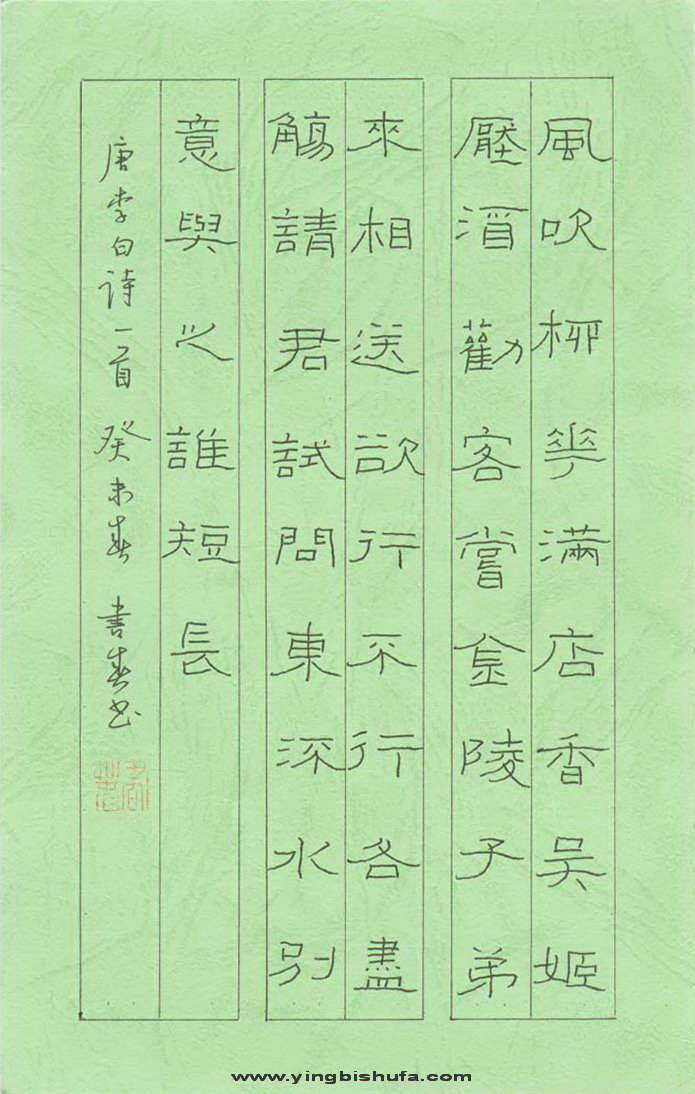 風吹柳花滿店香吳姬
壓酒勸客嘗金陵子弟
來相送欲行不行各盡
觴請君試問東深水別
意與之誰短長
唐李白诗一首 癸未春 書春书
www.yingbishufa.com